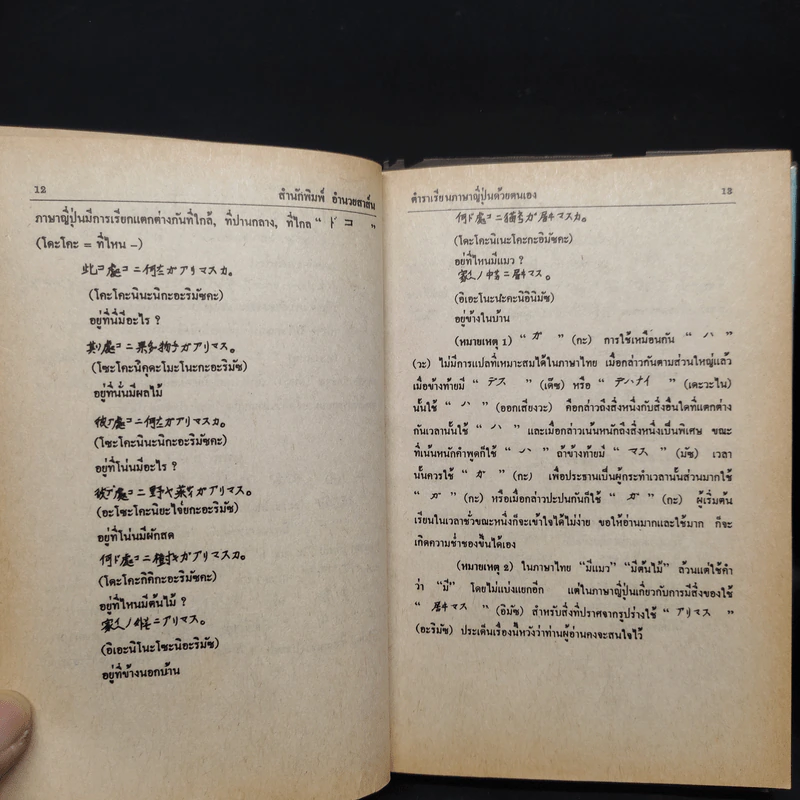 12
สำนักพิมพ์ อำนวยสาส์น
ภาษาญี่ปุ่นมีการเรียกแตกต่างกันที่ใกล้, ที่ปานกลาง, ที่ไกล “ ドコ ”
(โดะโคะ = ที่ไหน -)
此コ處コニ何ガアリマスカ。
(โคะโคะนินะนิกะอะริมัซคะ)
อยู่ที่นี่มีอะไร ?
處コニ果物ガアリマス。
(โซะโคะนิคุดะโมะโนะกะอะริมัซ)
อยู่ที่นั่นมีผลไม้
彼處コニ何ガアリマスカ。
(โซะโคะนินะนิกะอะริมัซคะ)
อยู่ที่โน่นมีอะไร ?
彼處コニ野菜ガアリマス。
(อะโซะโคะนิยะไจ่ยกะอะริมัซ)
อยู่ที่โน่นมีผักสด
何ド處コニ ガアリマスカ。
(โดะโคะกิกิกะอะริมัซคะ)
อยู่ที่ไหนมีต้นไม้ ?
家ノ ニアリマス。
(อิเอะนิโนะโซะนิอะริมัซ)
อยู่ที่ข้างนอกบ้าน
ตำราเรียนภาษาญี่ปุ่นด้วยตนเอง
13
何ド處コニ猫ガ居マスカ。
(โดะโคะนิเนะโคะกะอิมัซคะ)
อยู่ที่ไหนมีแมว ?
家ノ中ニ居マス。
(อิเอะโนะนะคะนิอินิมัซ)
อยู่ข้างในบ้าน
(หมายเหตุ 1) “ ガ ” (กะ) การใช้เหมือนกัน “ ハ ”
(วะ) ไม่มีการแปลที่เหมาะสมได้ในภาษาไทย เมื่อกล่าวกันตามส่วนใหญ่แล้ว
เมื่อข้างท้ายมี “ デス ” (เด๊ซ) หรือ “ デハナイ ” (เดะวะไน)
นั้นใช้ “ ハ ” (ออกเสียงวะ) คือกล่าวถึงสิ่งหนึ่งกับสิ่งอื่นใดที่แตกต่าง
กันเวลานั้นใช้ “ ハ ” และเมื่อกล่าวเน้นหนักถึงสิ่งหนึ่งเป็นพิเศษ ขณะ
ที่เน้นหนักคำพูดก็ใช้ “ ハ ” ถ้าข้างท้ายมี “ マス ” (มัซ) เวลา
นั้นควรใช้ “ ガ ” (กะ) เพื่อประธานเป็นผู้กระทำเวลานั้นส่วนมากใช้
“ ガ ” (กะ) หรือเมื่อกล่าวปะปนกันก็ใช้ “ ガ ” (กะ) ผู้เริ่มต้น
เรียนในเวลาชั่วขณะหนึ่งก็จะเข้าใจได้ไม่ง่าย ขอให้อ่านมากและใช้มาก ก็จะ
เกิดความช่ำชองขึ้นได้เอง
(หมายเหตุ 2) ในภาษาไทย “มีแมว” “มีต้นไม้” ล้วนแต่ใช้คำ
ว่า “มี” โดยไม่แบ่งแยกอีก แต่ในภาษาญี่ปุ่นเกี่ยวกับการมีสิ่งของใช้
“ 居マス ” (อิมัซ) สำหรับสิ่งที่ปราศจากรูปร่างใช้ “ アリマス ”
(อะริมัซ) ประเด็นเรื่องนี้หวังว่าท่านผู้อ่านคงจะสนใจไว้